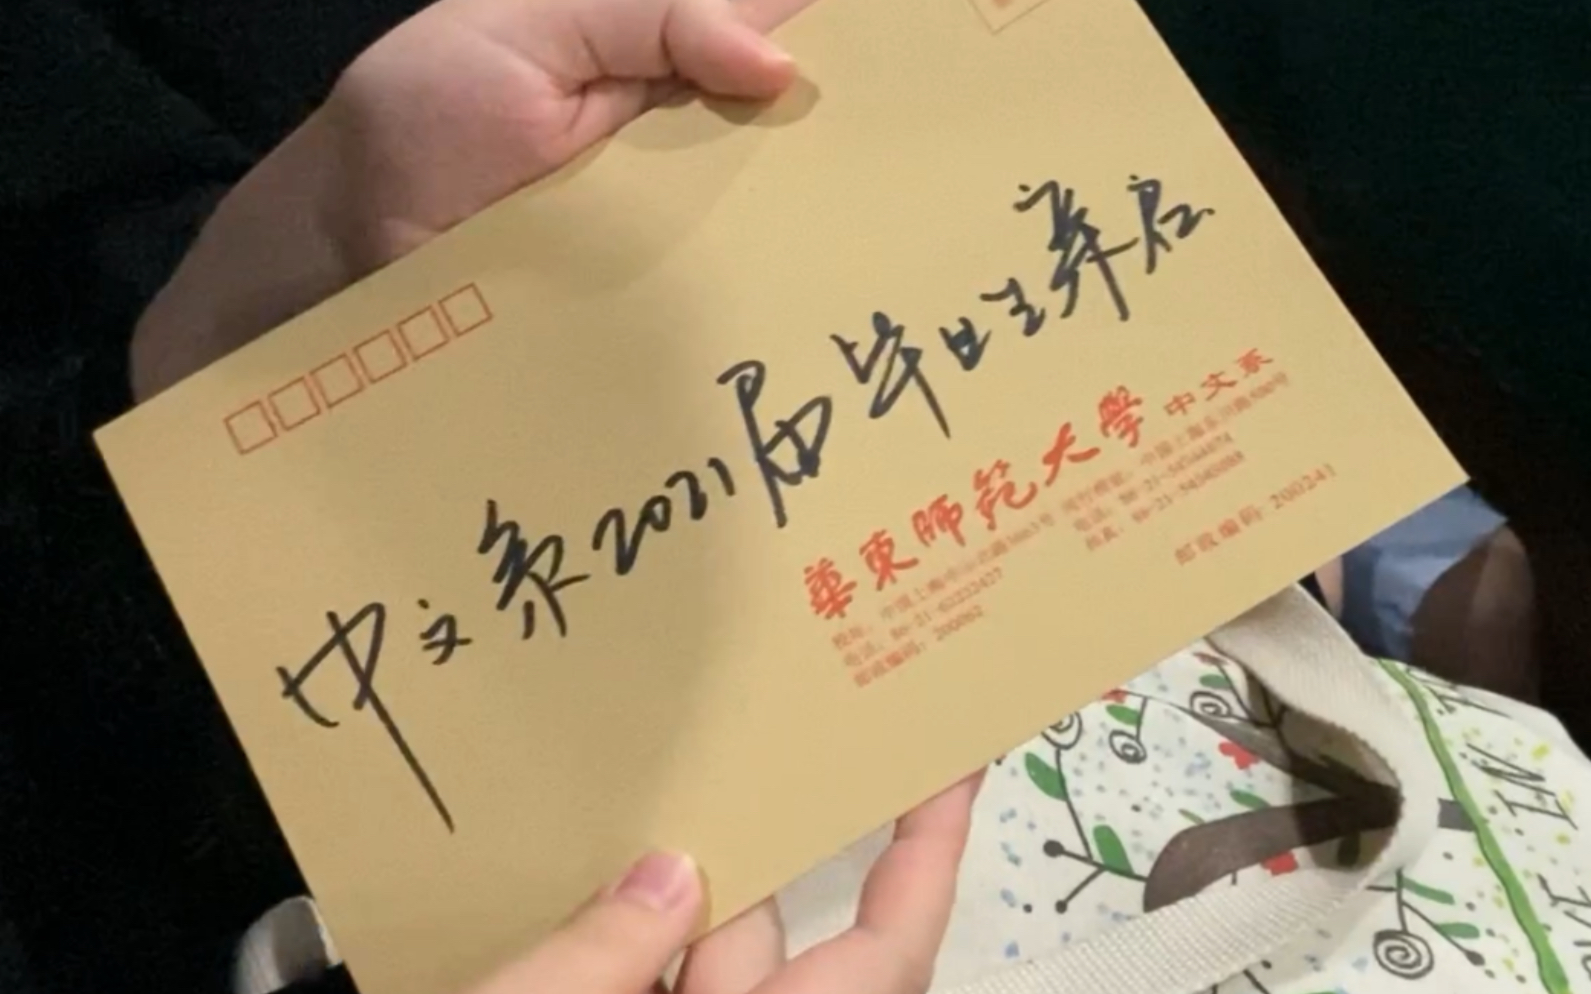 中文系2021届毕业生亲启
華東師范大學 中文系
校址：中国上海中山北路3663号 闵行校址：中国上海东川路500号
电话：86-21-62232427
邮政编码：200062
邮政编码：200241
IN